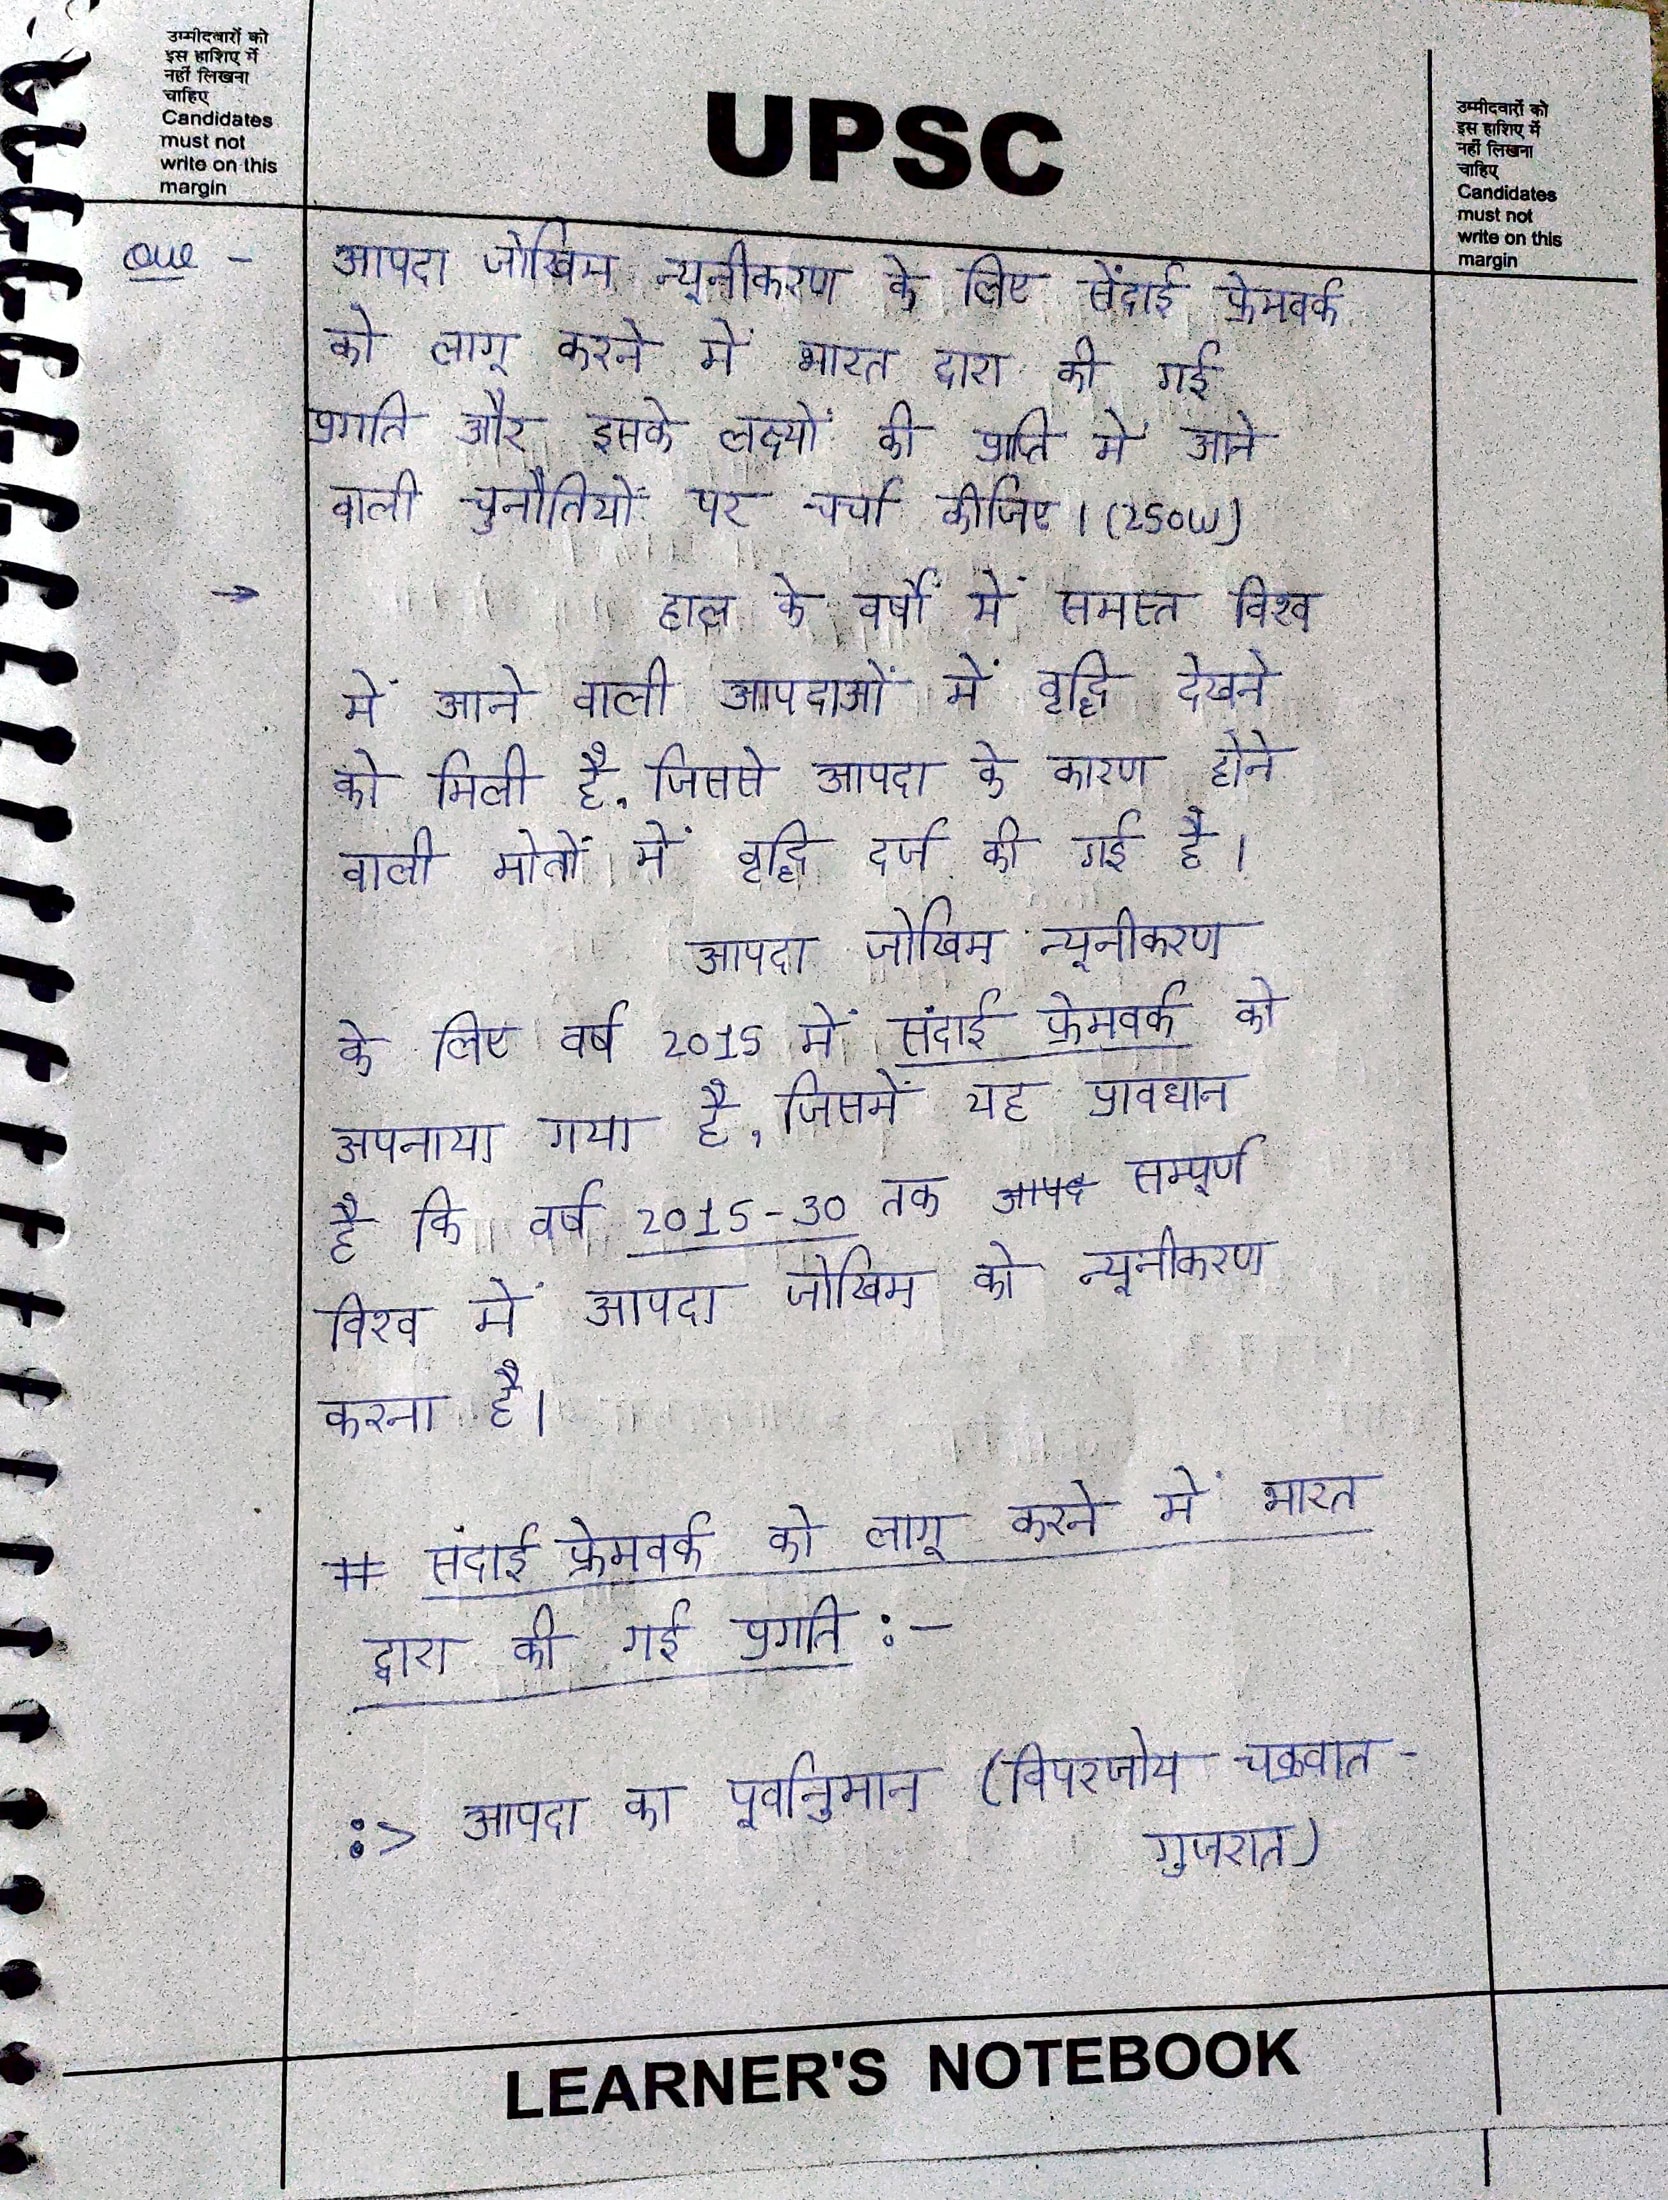 उम्मीदवारों को
इस हाशिए में
नहीं लिखना
चाहिए
Candidates
must not
write on this
margin
UPSC
उम्मीदवारों को
इस हाशिए में
नहीं लिखना
चाहिए
Candidates
must not
write on this
margin
Que - आपदा जोखिम न्यूनीकरण के लिए सेंदाई फ्रेमवर्क
को लागू करने में भारत द्वारा की गई
प्रगति और इसके लक्ष्यों की प्राप्ति में आने
वाली चुनौतियों पर चर्चा कीजिए। (250W)
→ हाल के वर्षों में समस्त विश्व
में आने वाली आपदाओं में वृद्धि देखने
को मिली है, जिससे आपदा के कारण होने
वाली मोतों में वृद्धि दर्ज की गई है।
आपदा जोखिम न्यूनीकरण
के लिए वर्ष 2015 में संदाई फ्रेमवर्क को
अपनाया गया है, जिसमें यह प्रावधान
है कि वर्ष 2015-30 तक आपद सम्पूर्ण
विश्व में आपदा जोखिम को न्यूनीकरण
करना है।
# संदाई फ्रेमवर्क को लागू करने में भारत
द्वारा की गई प्रगति :-
:> आपदा का पूर्वानुमान (विपरजोय चक्रवात -
गुजरात)
LEARNER'S NOTEBOOK